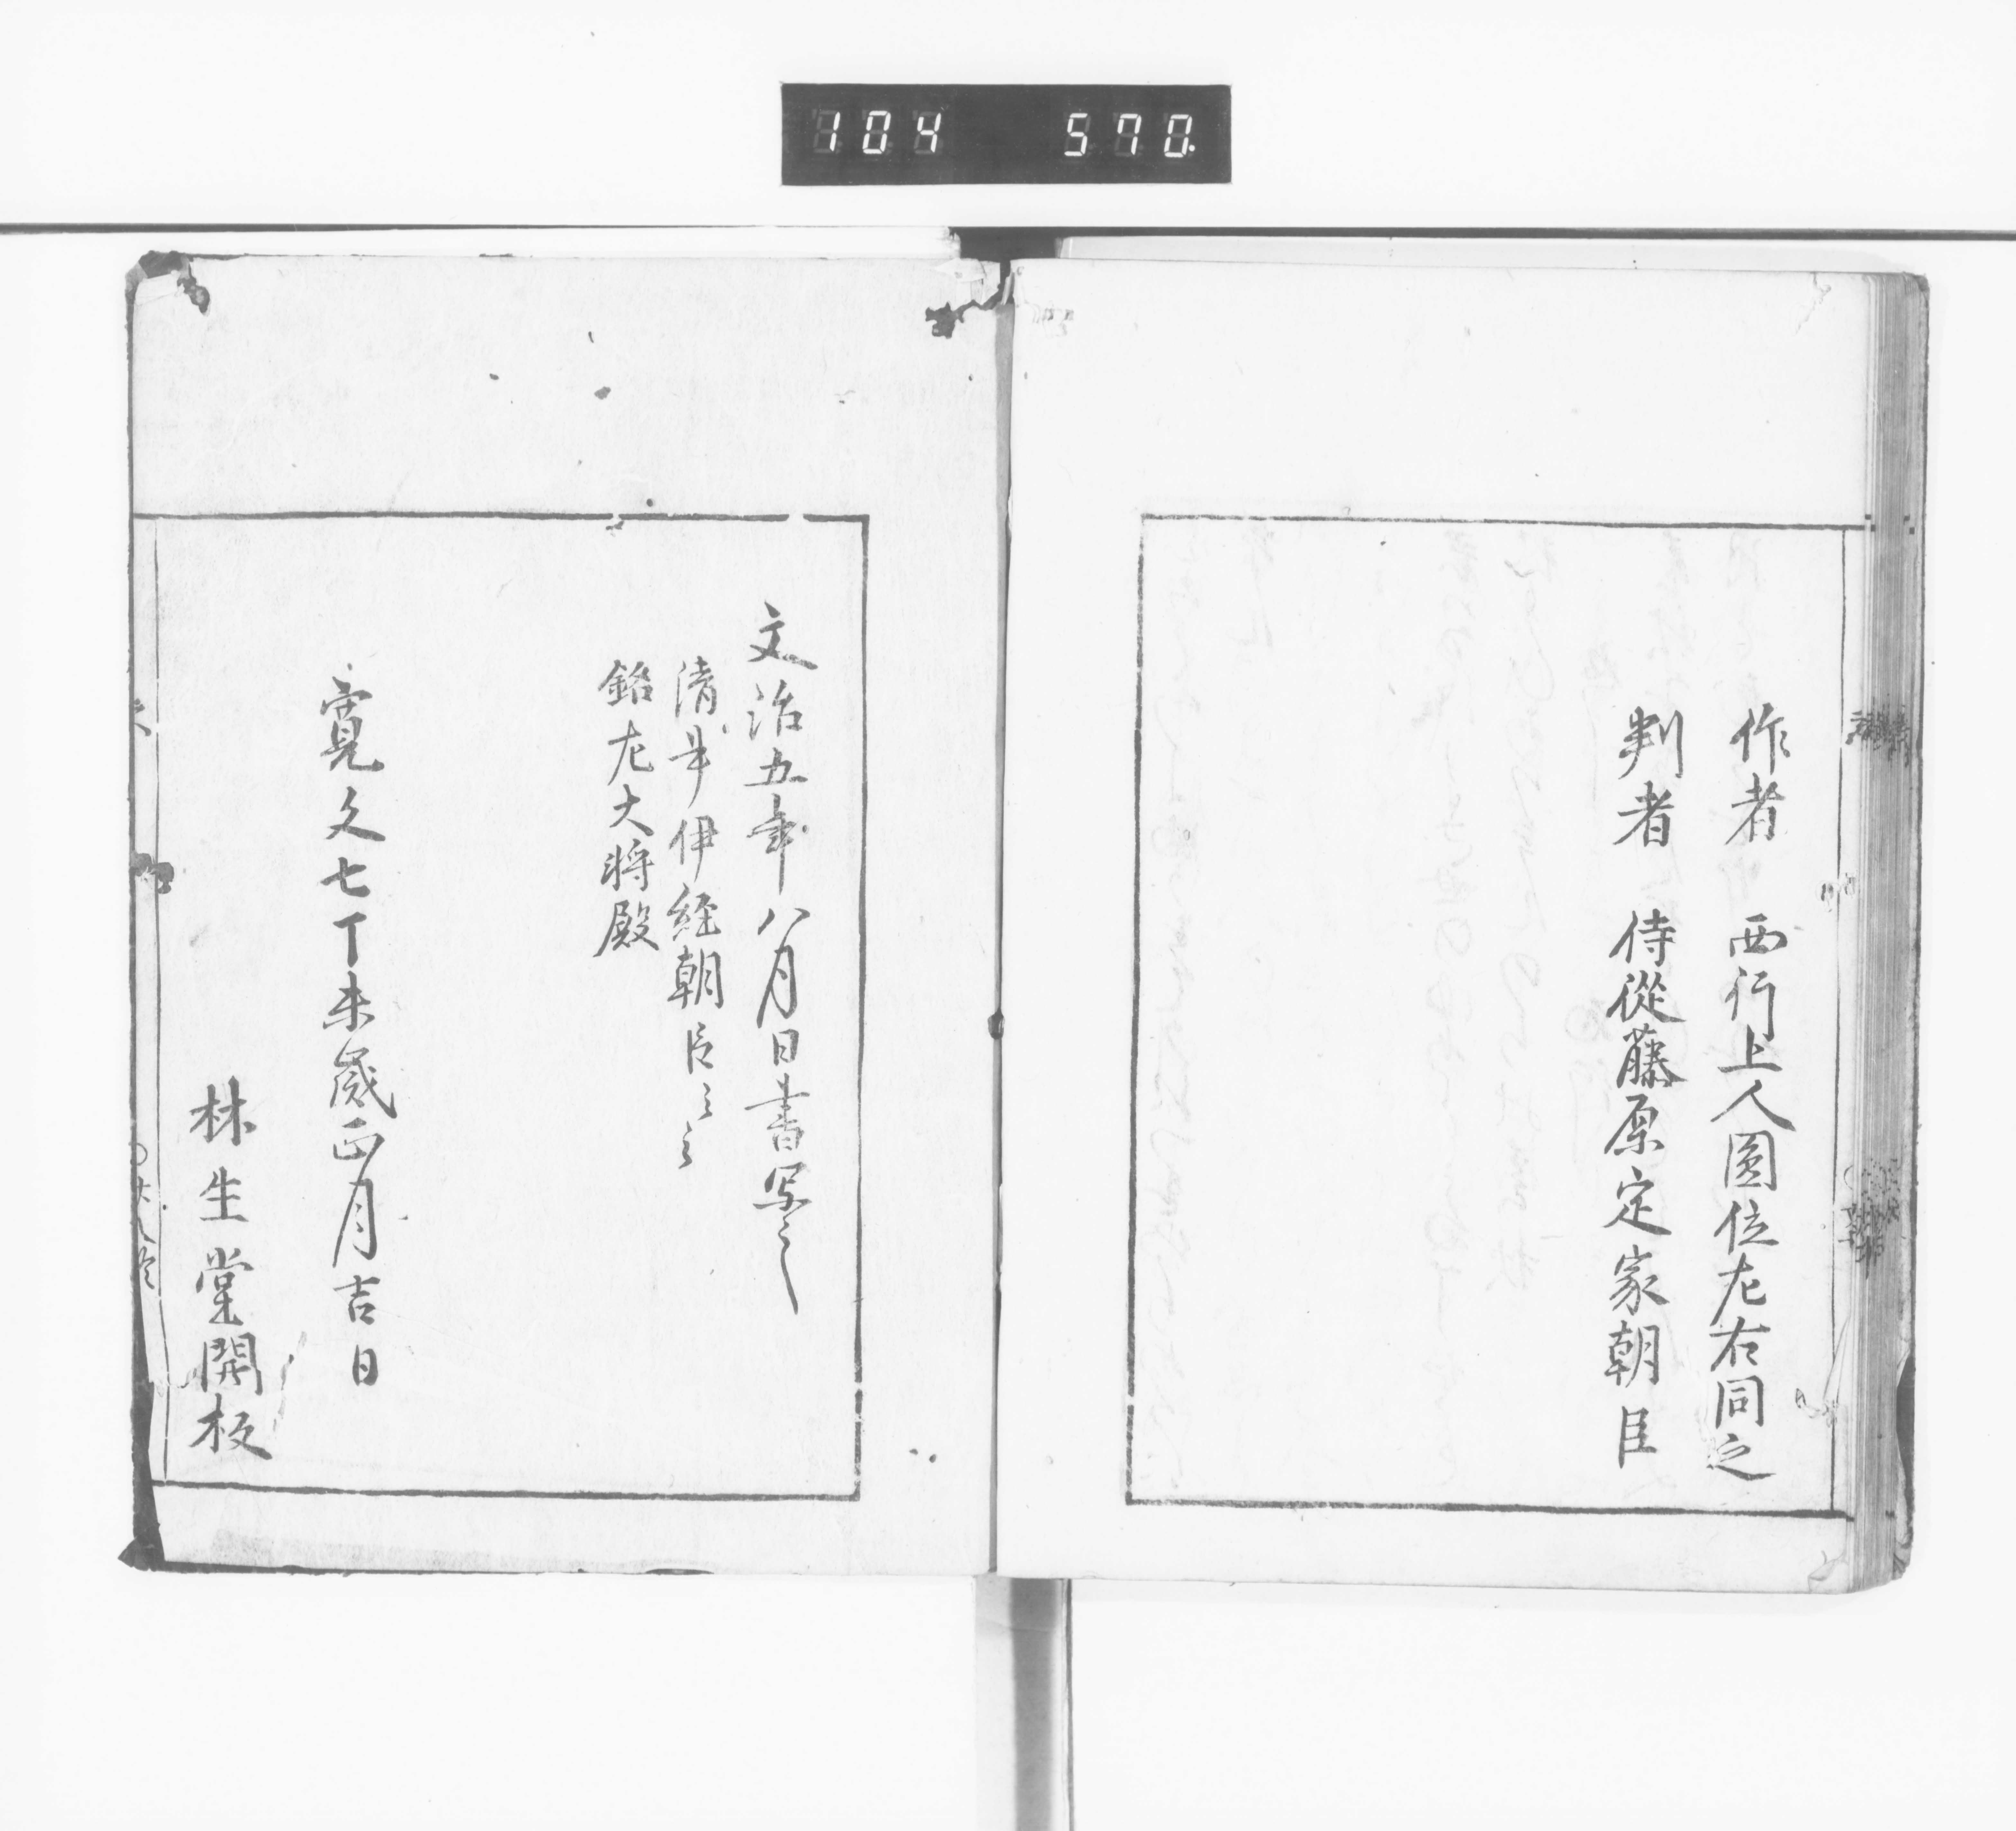 104 570.
作者 西行上人圓位左右同之
判者 侍從藤原定家朝臣
文治五年八月日書写之
清书伊経朝臣之
銘左大将殿
寛文七丁未歳正月吉日
林生堂開板